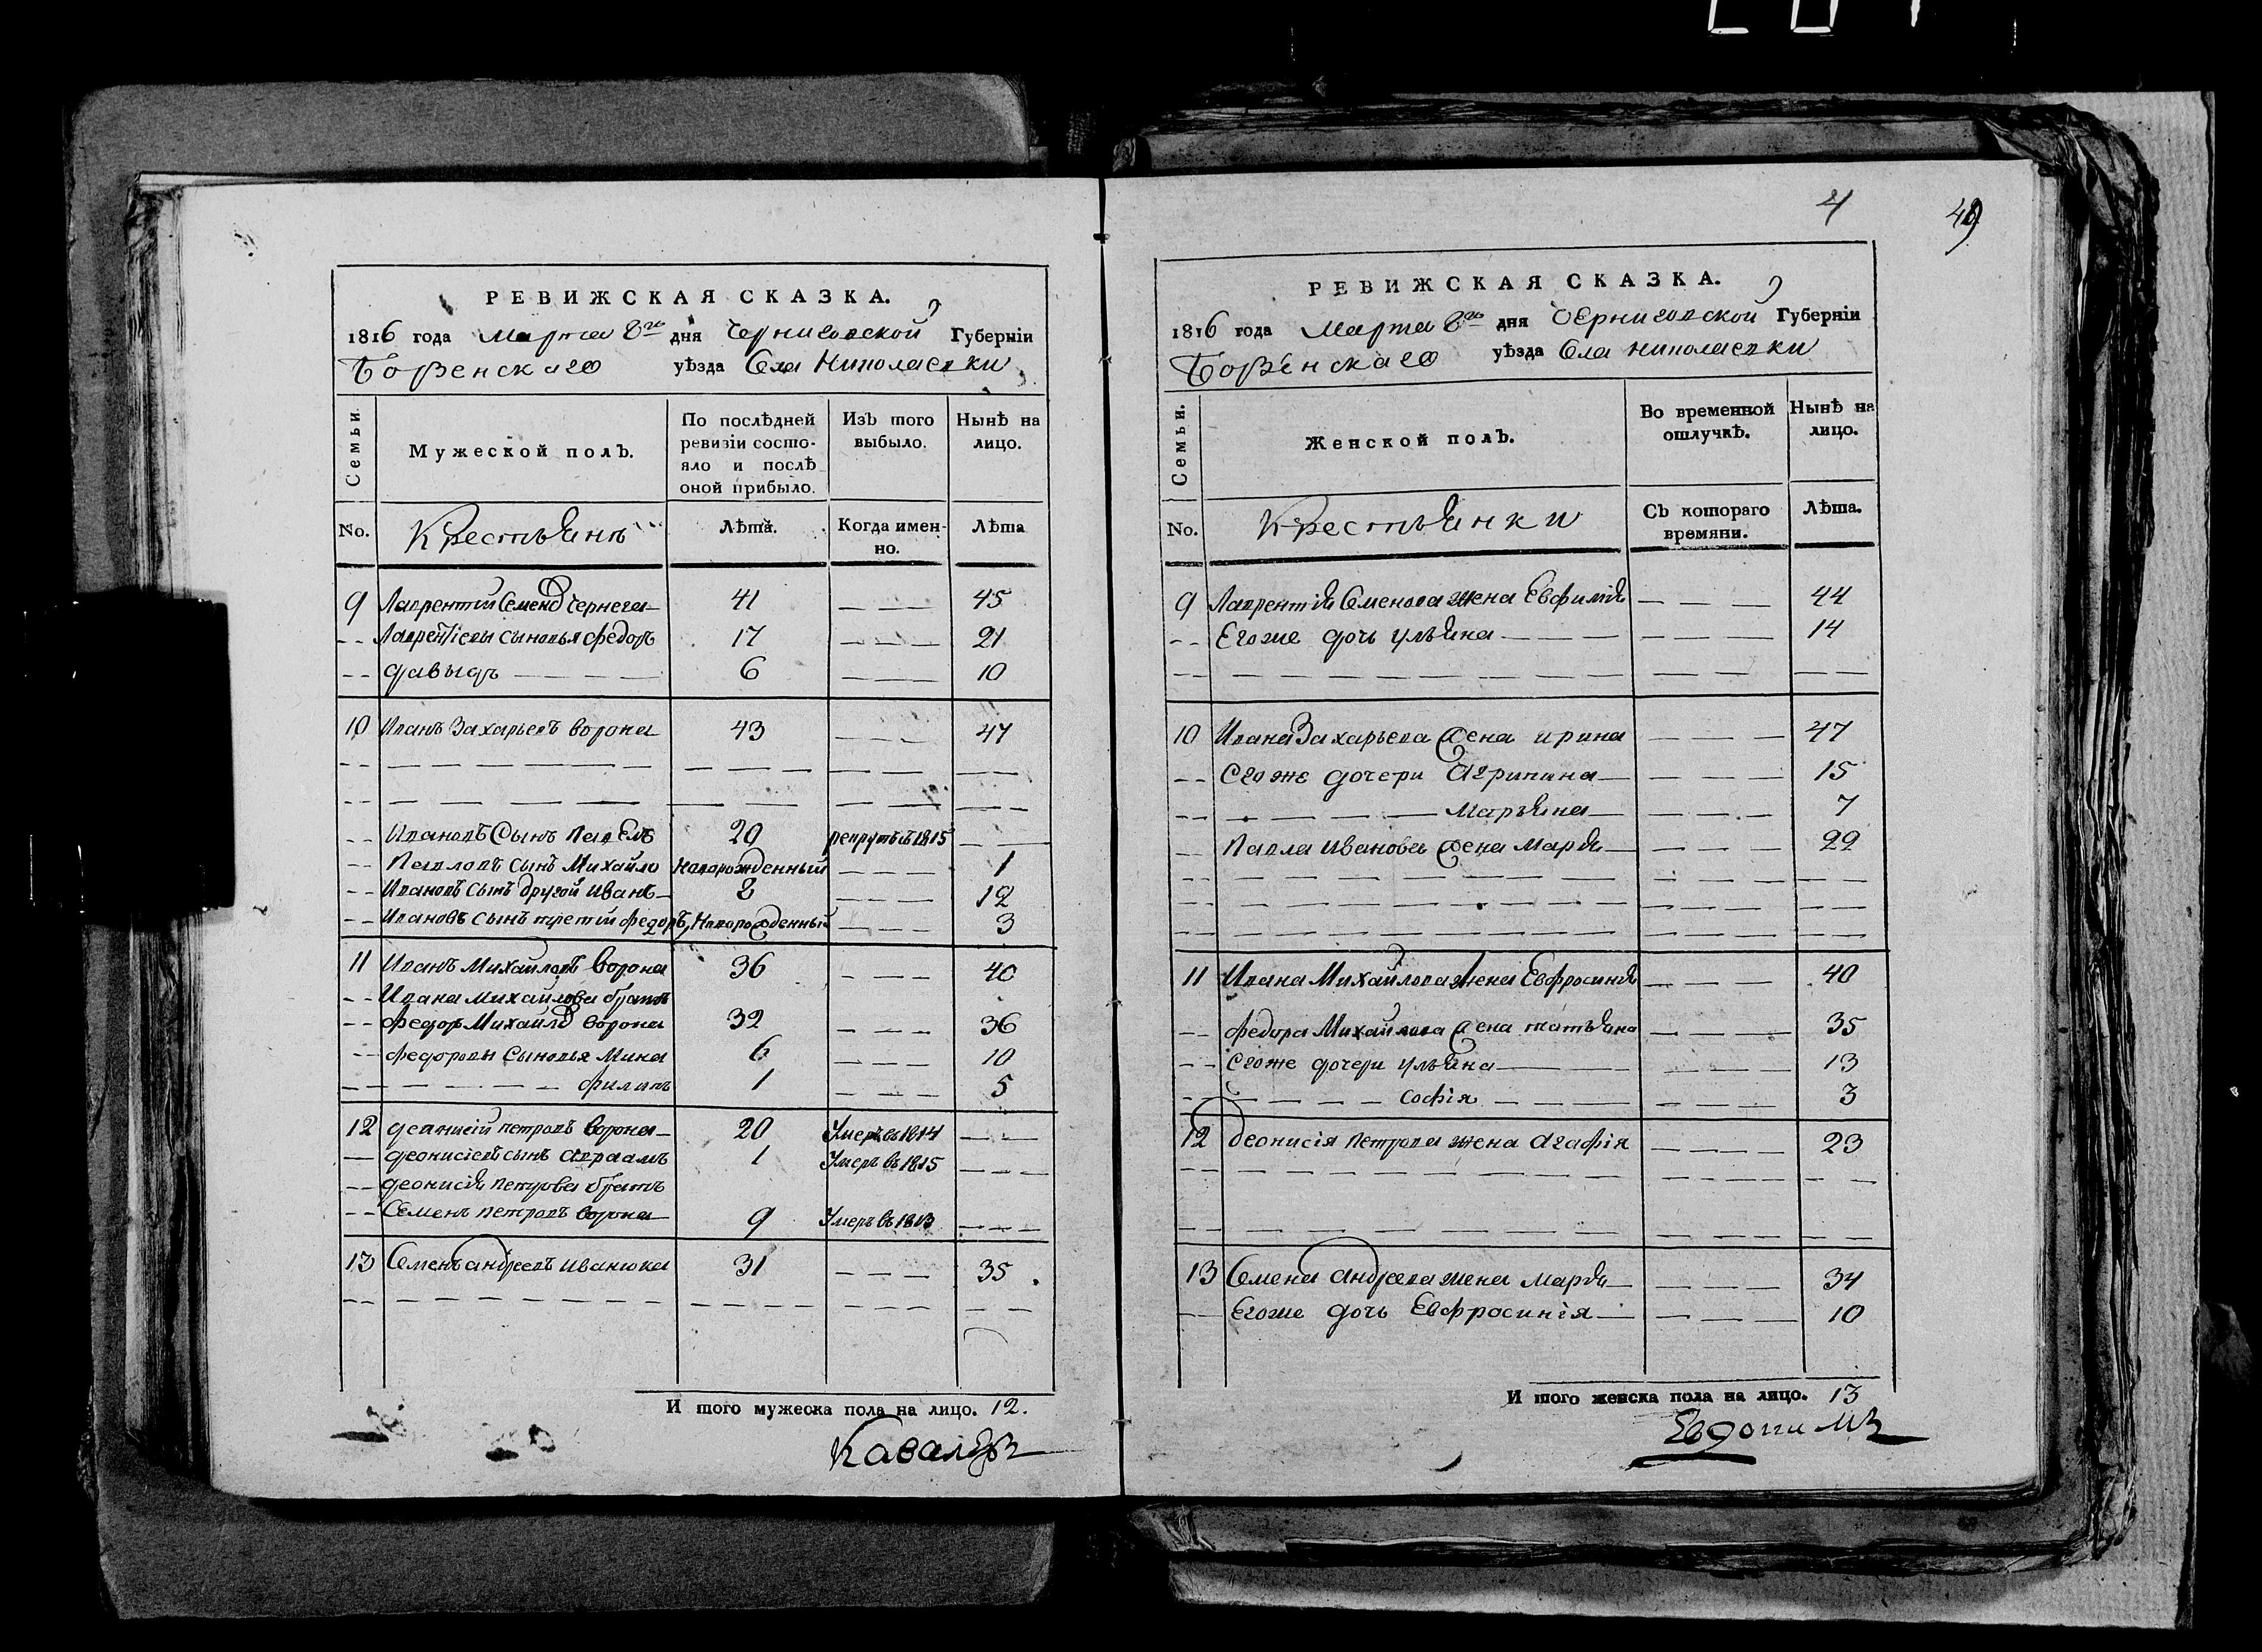 РЕВИЖСКАЯ СКАЗКА.
1816 года Марта 8го дня Черниговской Губерніи
Борзенскаго уѣзда Села Николаевки
Семьи. Мужеской полъ. По послѣдней ревизіи состояло и послѣ оной прибыло. Изъ того выбыло. Нынѣ на лицо.
No. Крестьянъ Лѣта. Когда именно. Лѣта
9 Лаврентій Семенов Чернега 41 — — — 45
— — Лаврентіевы сыновья Федоръ 17 — — — 21
— — Давыдъ — — — 6 — — — 10
10 Иванъ Захарьевъ Ворона 43 — — — 47
— — Ивановъ Сынъ Павелъ 20 рекрутъ въ 1815 — —
— — Павловъ сынъ Михайло новорожденный — — — 1
— — Ивановъ сынъ другой Иванъ 8 — — — 12
— — Ивановъ сынъ третій Федоръ, новорожденный — — — 3
11 Иванъ Михайловъ Ворона 36 — — — 40
— — Ивана Михайлова братъ
— — Федоръ Михайлов Ворона 32 — — — 36
— — Федоровы Сыновья Мина 6 — — — 10
— — — — — — Филипъ 1 — — — 5
12 Деонисій Петровъ Ворона 20 Умеръ въ 1814 — — —
— Деонисіевъ сынъ Авраамъ 1 Умеръ въ 1815 — — —
— — Деонисія Петрова братъ
— — Семенъ Петровъ Ворона 9 Умеръ въ 1813 — — —
13 Семенъ Андреевъ Иванюка 31 — — — 35
И того мужеска пола на лицо. 12.
Кавалеръ
4
49
РЕВИЖСКАЯ СКАЗКА.
1816 года Марта 8го дня Черниговской Губерніи
Борзенскаго уѣзда Села Николаевки
Семьи. Женской полъ. Во временной отлучкѣ. Нынѣ на лицо.
No. Крестьянки Съ котораго времяни. Лѣта.
9 Лаврентія Семенова жена Евфимія — — — 44
— — Егоже дочь Ульяна — — — 14
10 Ивана Захарьева жена Ирина — — — 47
— — Егоже дочери Агрипина — — — — 15
— — — — — Марьяна — — — 7
— — Павла Иванова жена Марья — — — 22
11 Ивана Михайлова жена Евфросинія — — — 40
— — Федора Михайлова жена Татьяна — — — 35
— — Егоже дочери Ульяна — — — 13
— — — — — Софія — — — 3
12 Деонисія Петрова жена Агафія — — — 23
13 Семена Андреева жена Марья — — — 34
— Егоже дочь Евфросинія — — — 10
И того женска пола на лицо. 13
Евдокимъ